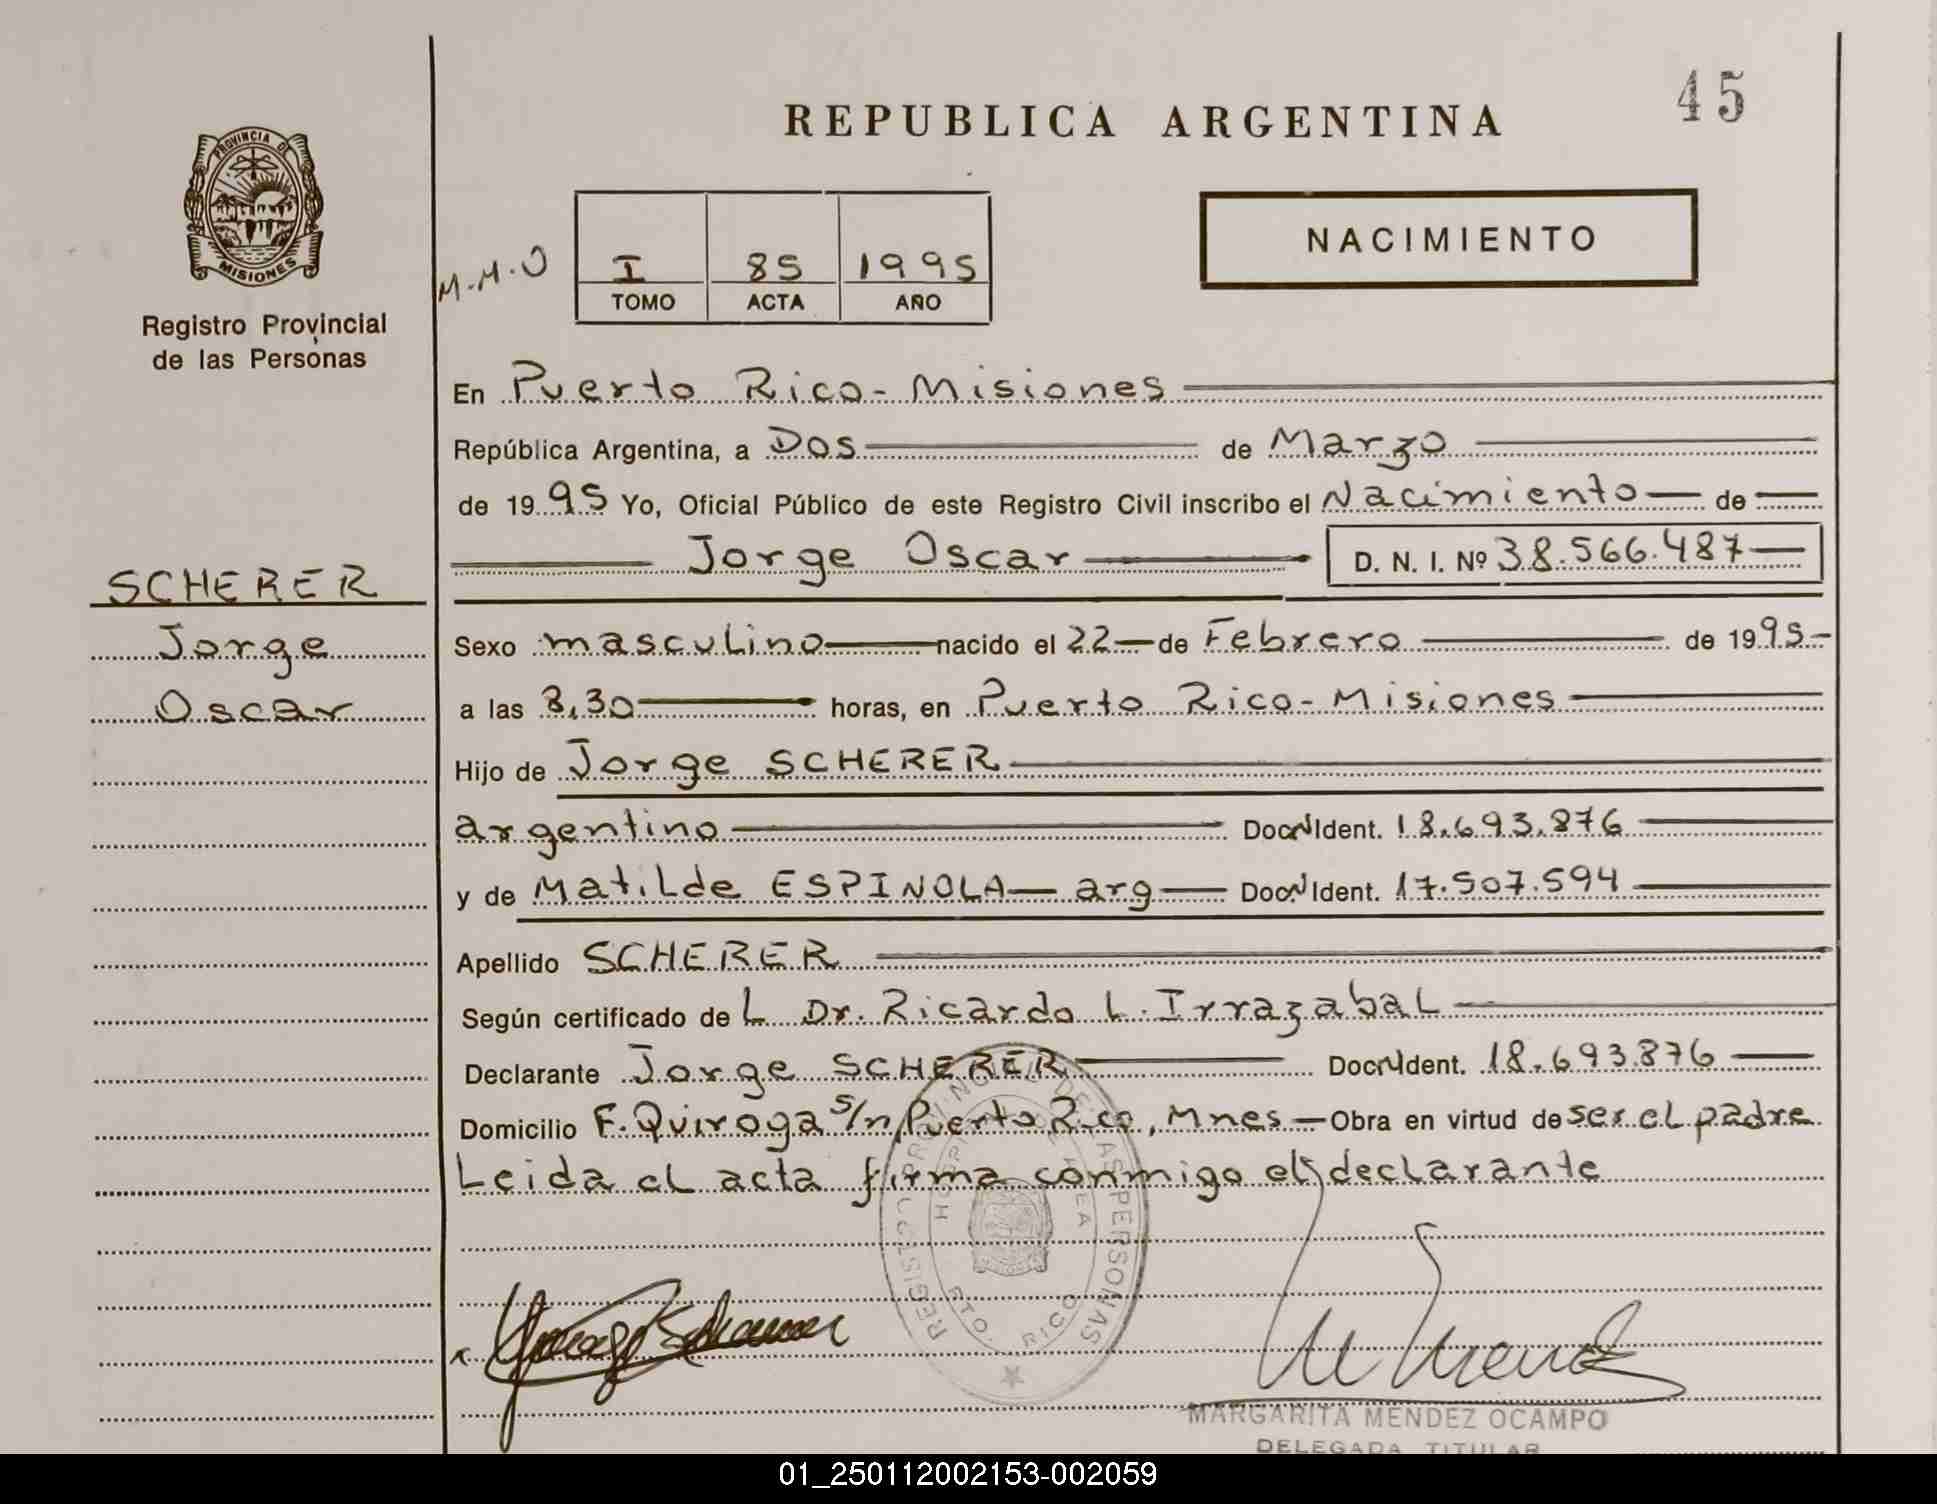 45
REPUBLICA ARGENTINA
PROVINCIA DE
MISIONES
Registro Provincial
de las Personas
M.M.O
I 85 1995
TOMO ACTA AÑO
NACIMIENTO
En Puerto Rico - Misiones
República Argentina, a Dos de Marzo
de 1995 Yo, Oficial Público de este Registro Civil inscribo el Nacimiento de
Jorge Oscar D. N. I. Nº 38.566.487
SCHERER
Jorge
Oscar
Sexo masculino nacido el 22 de Febrero de 1995
a las 8,30 horas, en Puerto Rico - Misiones
Hijo de Jorge SCHERER
argentino Doc. N Ident. 18.693.876
y de Matilde ESPINOLA arg Doc. N Ident. 17.507.594
Apellido SCHERER
Según certificado de L Dr. Ricardo L. Irrazabal
Declarante Jorge SCHERER Doc. N Ident. 18.693.876
Domicilio F. Quiroga s/n, Puerto Rico, Mnes Obra en virtud de ser el padre
Leida el acta firma conmigo el declarante
REGISTRO PROVINCIAL DE LAS PERSONAS
HOSPITAL DE AREA
PTO. RICO
MARGARITA MENDEZ OCAMPO
DELEGADA TITULAR
01_250112002153-002059